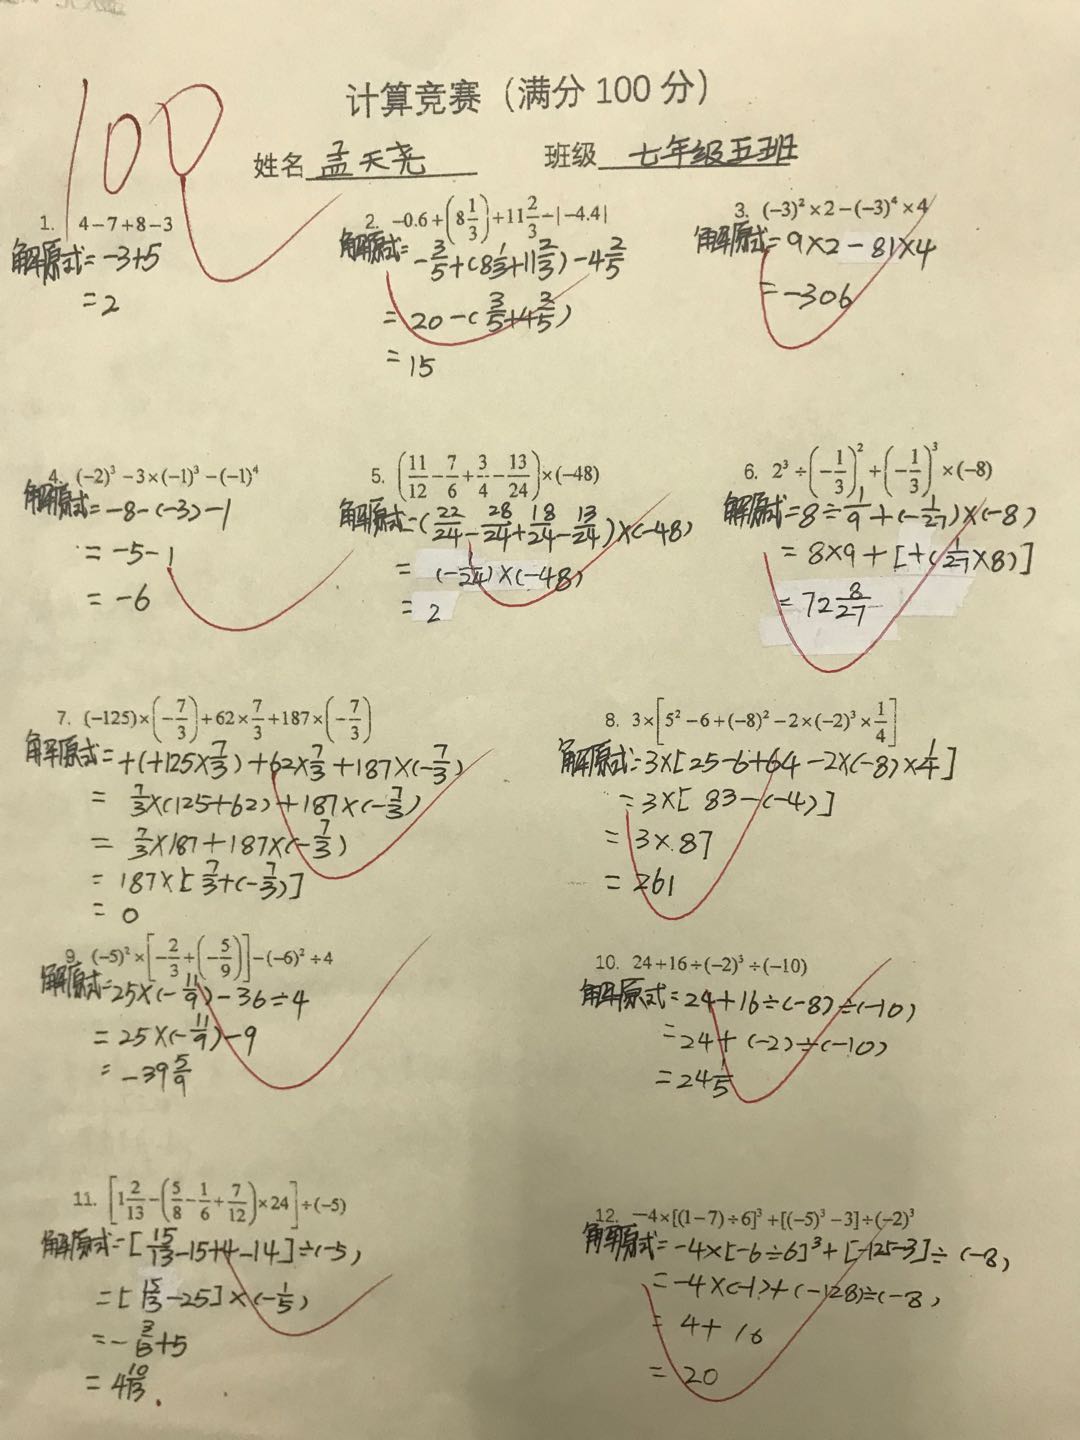 100
计算竞赛（满分 100 分）
姓名 孟天尧 班级 七年级五班
1. 4-7+8-3
解原式=-3+5
=2
2. -0.6+(8 1/3)+11 2/3-|-4.4|
解原式=-3/5+(8 1/3+11 2/3)-4 2/5
=20-(3/5+4 2/5)
=15
3. (-3)²×2-(-3)⁴×4
解原式=9×2-81×4
=-306
4. (-2)³-3×(-1)³-(-1)⁴
解原式=-8-(-3)-1
=-5-1
=-6
5. (11/12-7/6+3/4-13/24)×(-48)
解原式=(22/24-28/24+18/24-13/24)×(-48)
=(-1/24)×(-48)
=2
6. 2³÷(-1/3)²+(-1/3)³×(-8)
解原式=8÷1/9+(-1/27)×(-8)
=8×9+[+(1/27×8)]
=72 8/27
7. (-125)×(-7/3)+62×7/3+187×(-7/3)
解原式=+(+125×7/3)+62×7/3+187×(-7/3)
=7/3×(125+62)+187×(-7/3)
=7/3×187+187×(-7/3)
=187×[7/3+(-7/3)]
=0
8. 3×[5²-6+(-8)²-2×(-2)³×1/4]
解原式=3×[25-6+64-2×(-8)×1/4]
=3×[83-(-4)]
=3×87
=261
9. (-5)²×[-2/3+(-5/9)]-(-6)²÷4
解原式=25×(-11/9)-36÷4
=25×(-11/9)-9
=-39 5/9
10. 24+16÷(-2)³÷(-10)
解原式=24+16÷(-8)÷(-10)
=24+(-2)÷(-10)
=24 1/5
11. [1 2/13-(5/8-1/6+7/12)×24]÷(-5)
解原式=[15/13-15+4-14]÷(-5)
=[15/13-25]×(-1/5)
=-3/13+5
=4 10/13.
12. -4×[(1-7)÷6]³+[(-5)³-3]÷(-2)³
解原式=-4×[-6÷6]³+[-125-3]÷(-8)
=-4×(-1)+(-128)÷(-8)
=4+16
=20